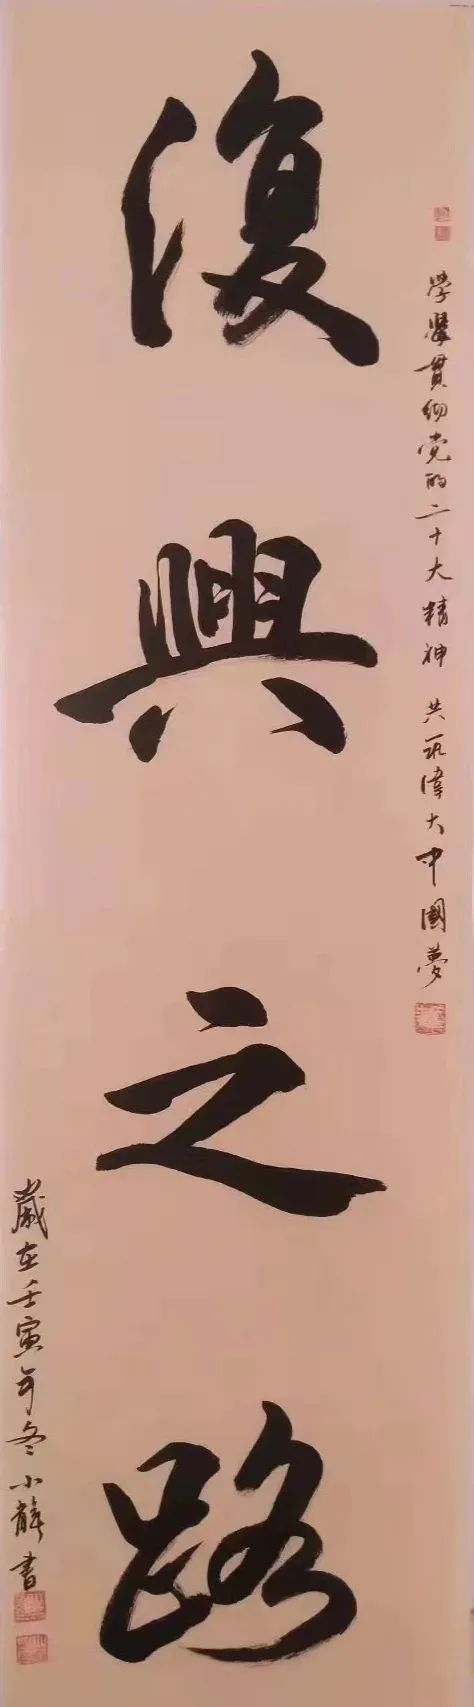 學習貫彻党的二十大精神 共筑偉大中國夢
復興之路
歲在壬寅年冬小書